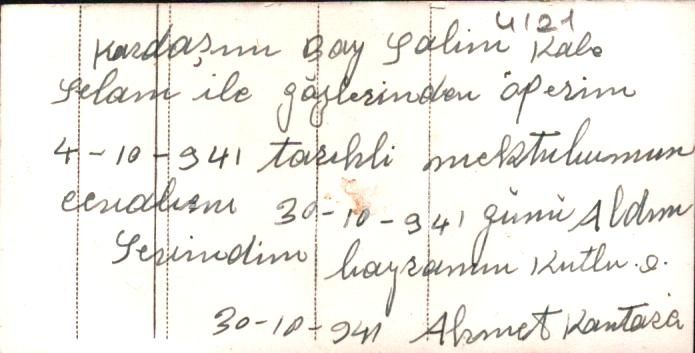 4121
Kardaşım Bay Salim Kale
Selam ile gözlerinden öperim
4-10-941 tarihli mektubumun
cevabını 30-10-941 günü Aldım
Sevindim bayramın Kutlu.o.
30-10-941 Ahmet